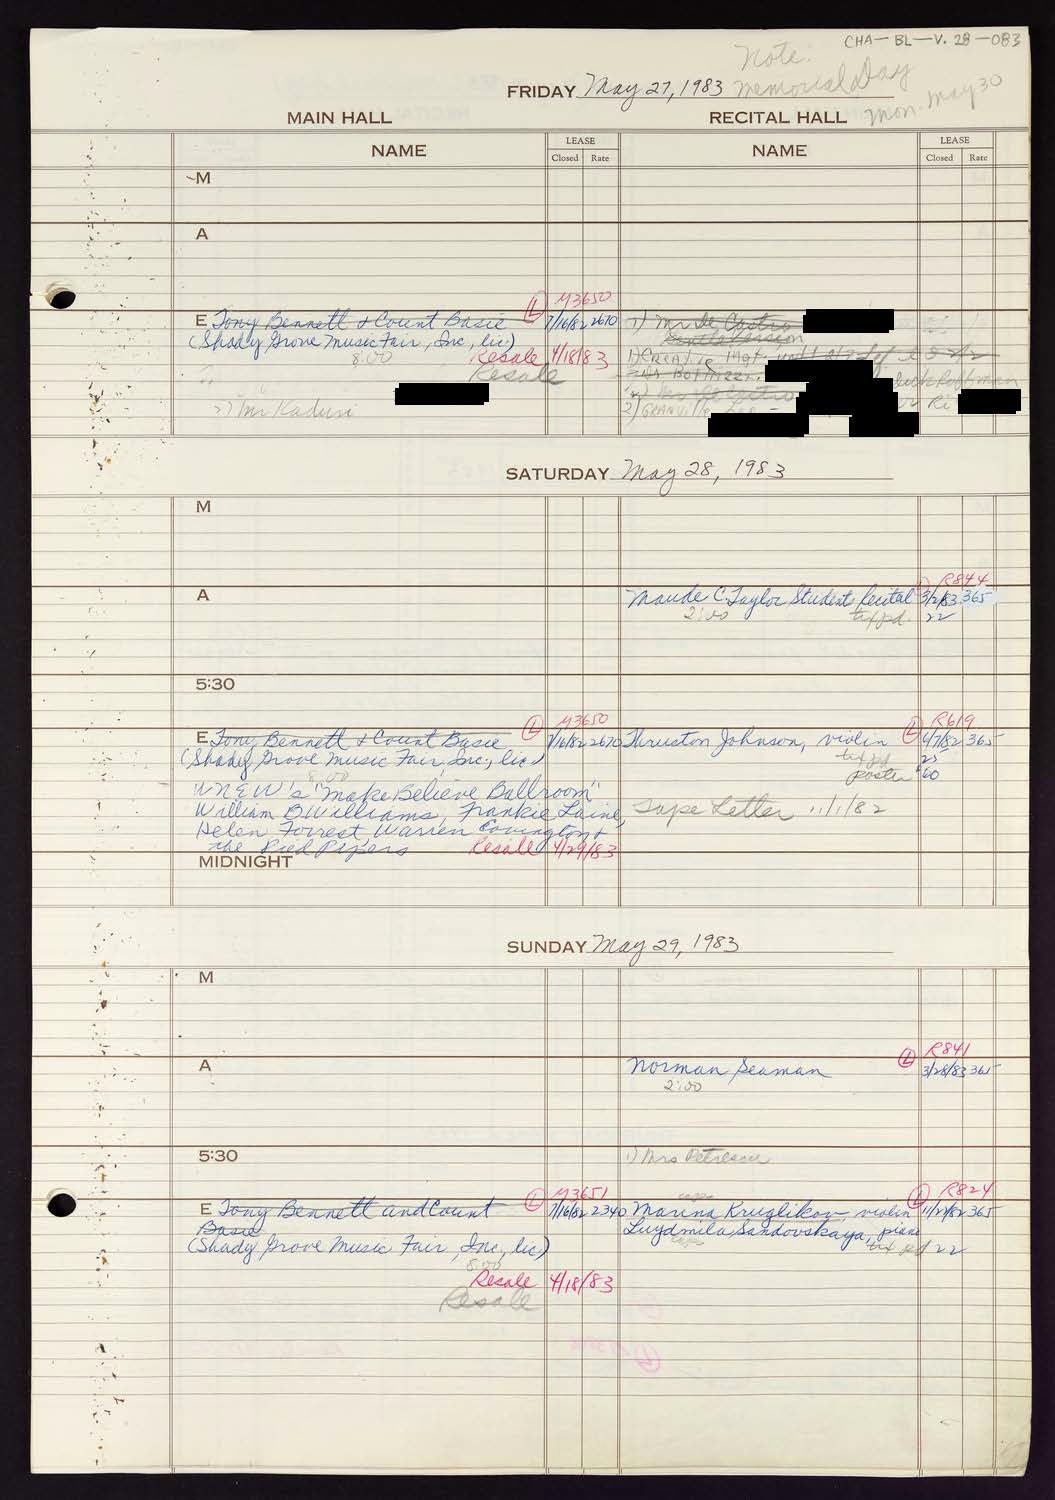 CHA-BL-V. 28-083
Note:
Memorial Day
Mon. May 30
FRIDAY May 27, 1983
MAIN HALL RECITAL HALL
NAME LEASE NAME LEASE
Closed Rate Closed Rate
M
A
L M3650
E Tony Bennett & Count Basie 7/16/82 2670 1) Mr De Castro
(Shady Grove Music Fair, Inc, lic)
8:00 Resale 4/18/83 1) Creative Mgt.
Resale
2) Mr Kaduri
2)
SATURDAY May 28, 1983
M
R844
A Maude C. Taylor Student Recital 3/2/83 365
2:00 tix pd. 22
5:30
L M3650 L R619
E Tony Bennett & Count Basie 7/16/82 2670 Thruston Johnson, violin 4/7/82 365
(Shady Grove Music Fair, Inc, lic) tix pd 25
8:00 poster 60
WNEW's "Make Believe Ballroom"
William B Williams, Frankie Laine, Tape Letter 11/1/82
Helen Forrest, Warren Covington &
the Pied Pipers Resale 4/29/83
MIDNIGHT
SUNDAY May 29, 1983
M
L R841
A Norman Seaman 3/28/83 365
2:00
5:30 1) Mrs Petrescu
L M3651 L R824
E Tony Bennett and Count 7/16/82 2340 Marina Kruglikov, violin 365
Basie Luydmila Sandovskaya, piano
(Shady Grove Music Fair, Inc, lic) tix pd 22
8:00
Resale 4/18/83
Resale